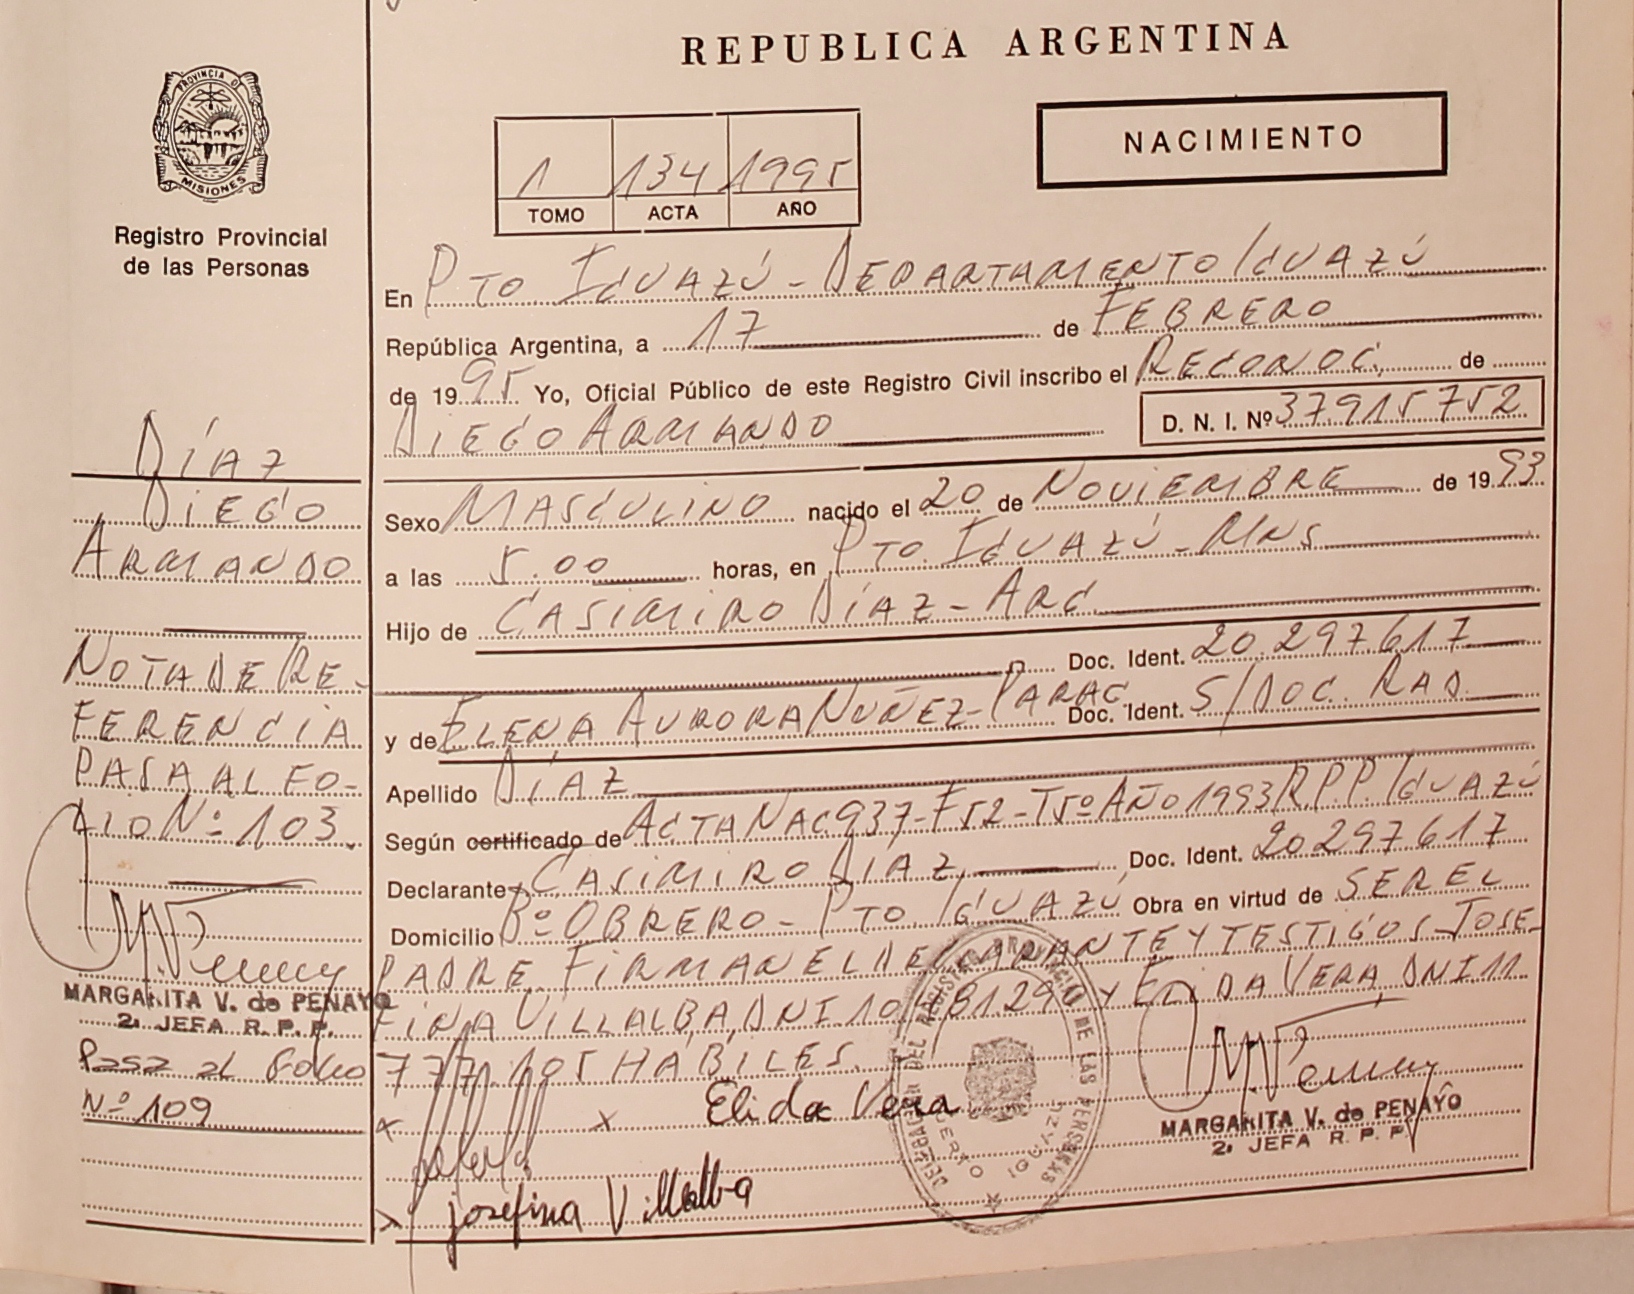 REPUBLICA ARGENTINA
PROVINCIA DE
MISIONES
Registro Provincial
de las Personas
NACIMIENTO
1 134 1995
TOMO ACTA AÑO
En PTO IGUAZÚ - DEPARTAMENTO IGUAZÚ
República Argentina, a 17 de FEBRERO
de 1995 Yo, Oficial Público de este Registro Civil inscribo el RECONOC. de
DIEGO ARMANDO D. N. I. Nº 37915752
Sexo MASCULINO nacido el 20 de NOVIEMBRE de 1993
a las 5.00 horas, en PTO. IGUAZÚ - MNS
Hijo de CASIMIRO DÍAZ - ARG
Doc. Ident. 20.297.617
y de ELENA AURORA NUÑEZ - PARAG. Doc. Ident. S/DOC. RAD.
Apellido DÍAZ
Según certificado de ACTA NAC 937 - F52 - T5º AÑO 1993 R.P.P. IGUAZÚ
Declarante CASIMIRO DIAZ, Doc. Ident. 20297617
Domicilio Bº OBRERO - PTO IGUAZÚ Obra en virtud de SER EL
PADRE FIRMAN EL DECLARANTE Y TESTIGOS JOSE-
FINA VILLALBA, DNI Y ELIDA VERA, DNI 11
HÁBILES.
x x Elida Vera
Josefina Villalba
MARGARITA V. de PENAYO
2. JEFA R. P. P.
DELEGACION DEL REGISTRO PROVINCIAL DE LAS PERSONAS
PUERTO IGUAZU
DÍAZ
DIEGO
ARMANDO
NOTA DE RE-
FERENCIA
PASA AL FO-
LIO Nº 103.
MARGARITA V. de PENAYO
2. JEFA R. P. P.
Pasa al Folio
Nº 109